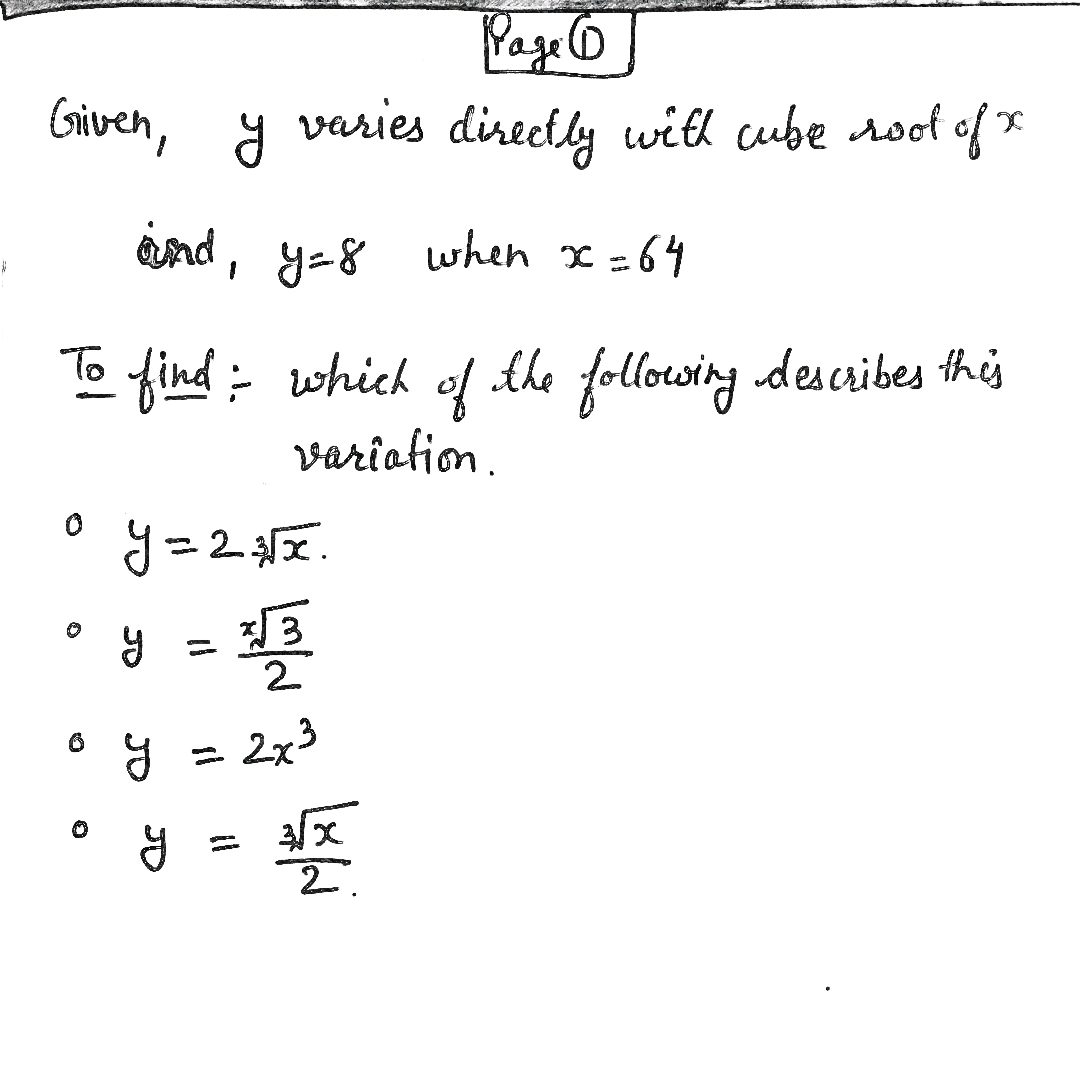 Page ①
Given, y varies directly with cube root of x
and, y=8 when x=64
To find :- which of the following describes this
variation.
○ y = 2∛x.
○ y = ˣ√3/2
○ y = 2x³
○ y = ∛x/2.